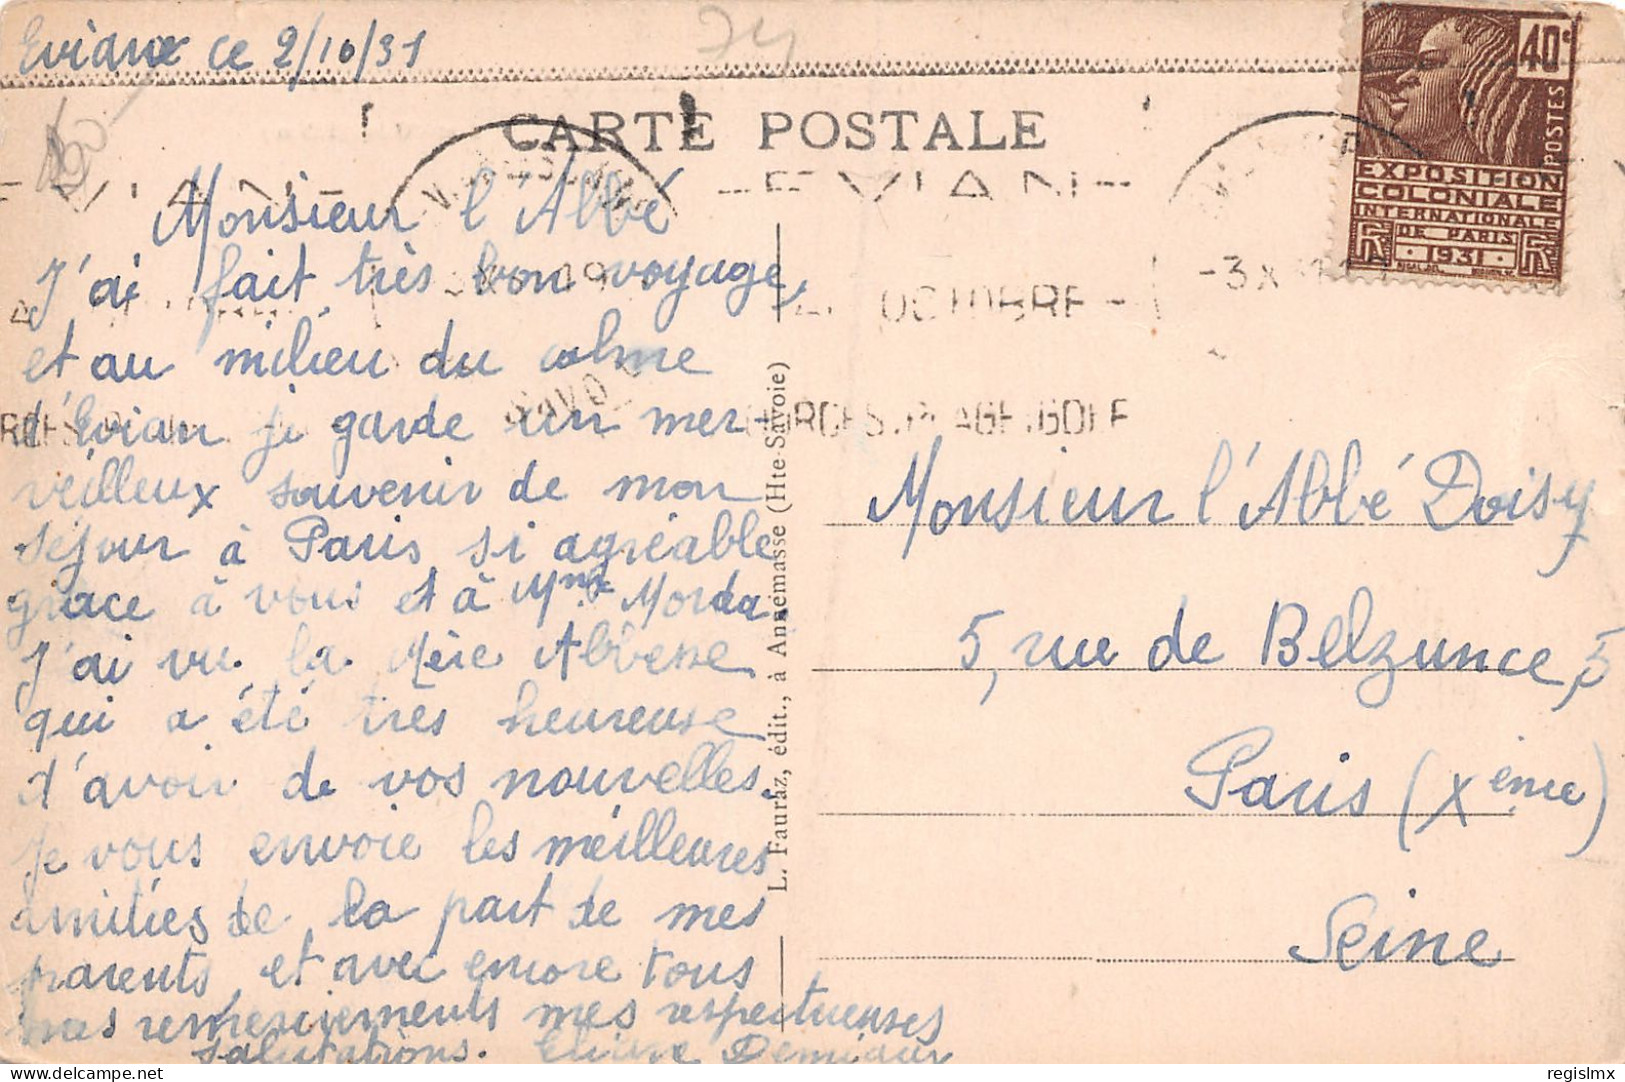 Evian ce 2/10/31
74
CARTE POSTALE
Monsieur l'Abbé
J'ai fait très bon voyage,
et au milieu du calme
d'Evian je garde un mer-
veilleux souvenir de mon
séjour à Paris si agréable
grâce à vous et à Mme Morda.
J'ai vu la Mère Abbesse
qui a été très heureuse
d'avoir de vos nouvelles.
Je vous envoie les meilleures
amitiés de la part de mes
parents et avec encore tous
mes remerciements mes respectueuses
salutations.
L. Fauraz, édit., à Annemasse (Hte-Savoie)
-EVIAN-
OCTOBRE -
PLAGE.GOLF
-3 X
40c
POSTES
EXPOSITION
COLONIALE
INTERNATIONALE
DE PARIS
RF · 1931 · RF
Monsieur l'Abbé Doisy
5, rue de Belzunce, 5
Paris (Xème)
Seine
delcampe.net
regislmx